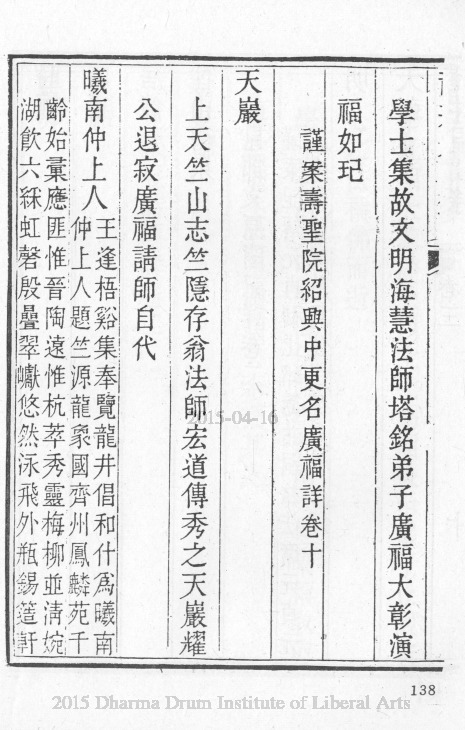 學士集故文明海慧法師塔銘弟子廣福大彰演
福如玘
謹案壽聖院紹興中更名廣福詳卷十
天巖
上天竺山志竺隱存翁法師宏道傳秀之天巖耀
公退寂廣福請師自代
曦南仲上人王逢梧谿集奉覽龍井倡和什爲曦南
仲上人題竺源龍象國齊州鳳麟苑千
齡始彙應匪惟晉陶遠惟杭萃秀靈梅柳並淸婉
湖飮六綵虹磬殷疊翠巘悠然泳飛外瓶錫筵軒
2015-04-16
138
2015 Dharma Drum Institute of Liberal Arts